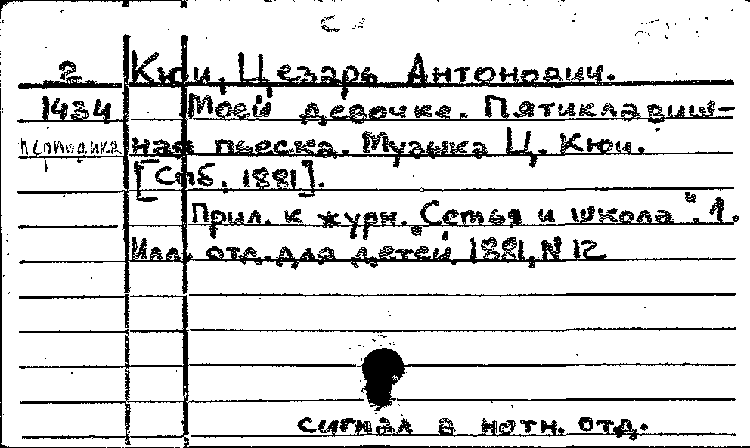 2 Кюи, Цезарь Антонович.
1434 Моей девочке. Пятиклавиш-
периодика ная пьеска. Музыка Ц. Кюи.
[Спб, 1881].
Прил. к журн. "Семья и школа". 1.
Илл. отд. для детей, 1881, N 12
сигнал в нотн. отд.